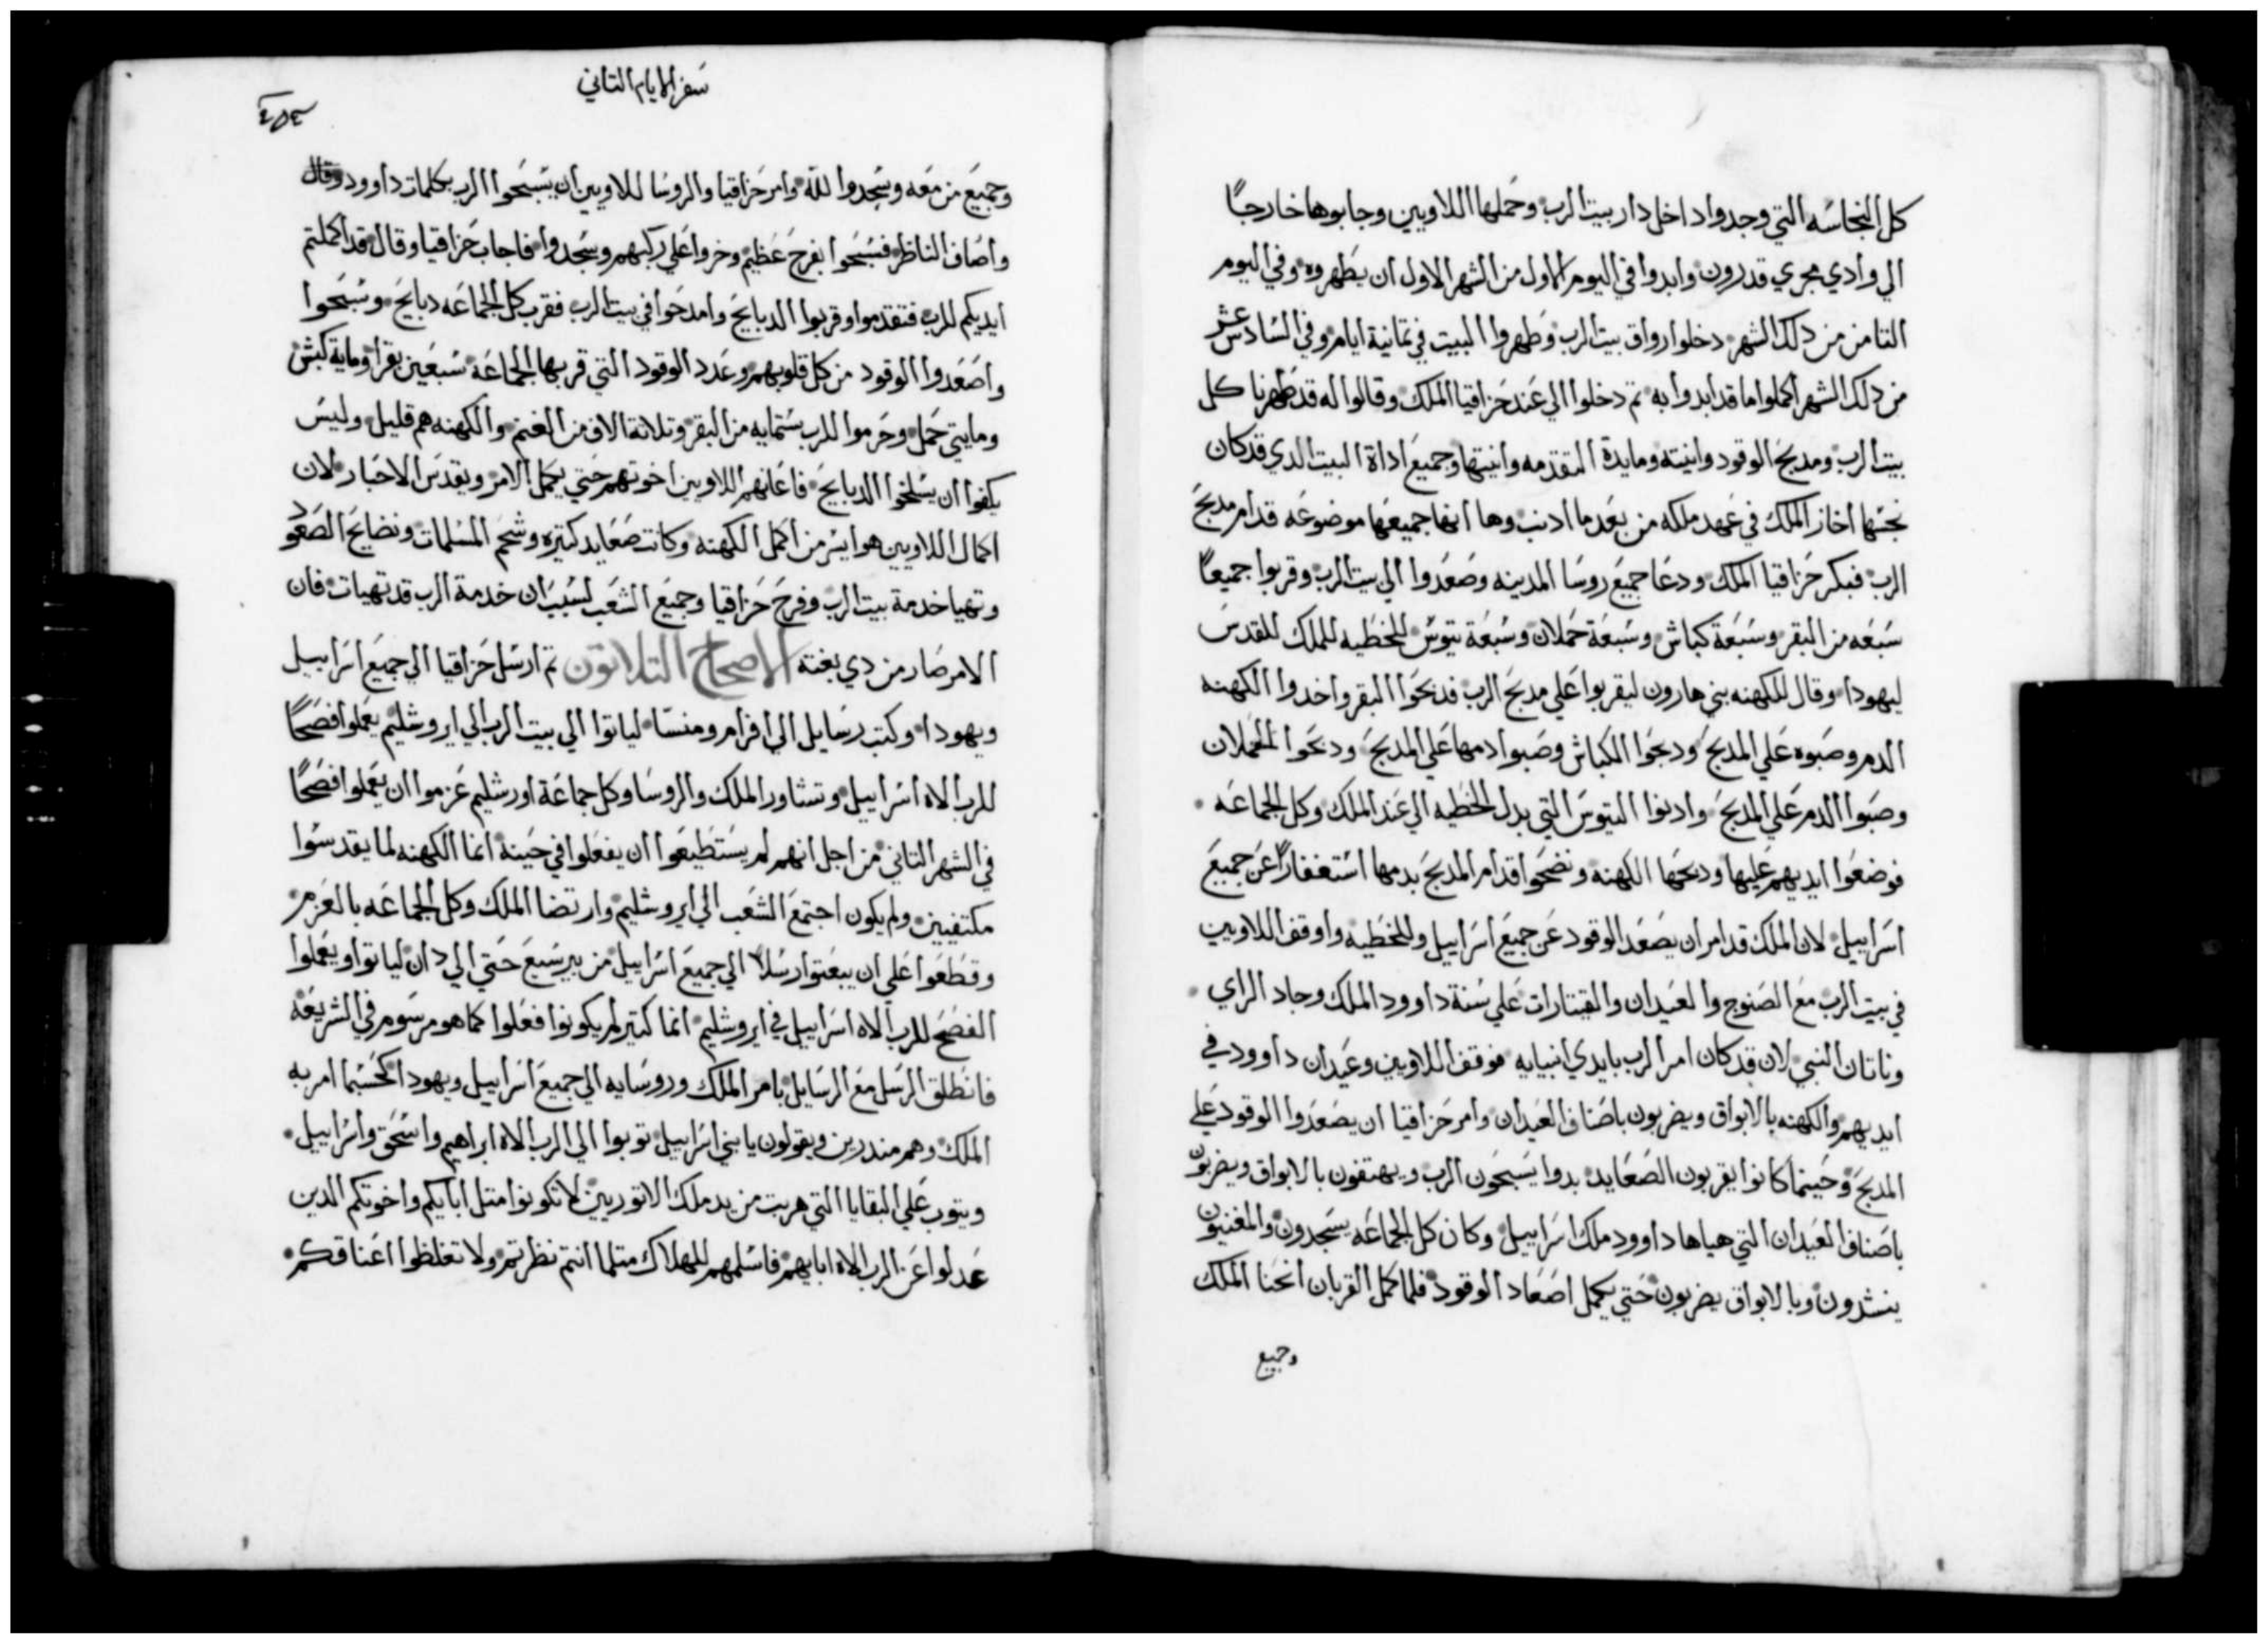 كل النجاسه التي وجدوا داخل دار بيت الرب وحملها اللاويين وجابوها خارجاً
الي وادي مجري قدرون وابدوا في اليوم الاول من الشهر الاول ان يطهروه وفي اليوم
التامن من دلك الشهر دخلوا رواق بيت الرب وطهروا البيت في تمانية ايام وفي السادس عشر
من دلك الشهر اكملوا ما قد ابدوا به تم دخلوا الي عند حزاقيا الملك وقالوا له قد طهرنا كل
بيت الرب ومدبح الوقود وانيته ومايدة المقدمه وانيتها وجميع اداة البيت الدي قد كان
نجسها اخاز الملك في عهد ملكه من بعد ما ادنب وها انها جميعها موضوعه قدام مدبح
الرب فبكر حزاقيا الملك ودعا جميع روسا المدينه وصعدوا الي بيت الرب وقربوا جميعاً
سبعه من البقر وسبعة كباش وسبعة حملان وسبعة تيوس للخطيه للملك للقدس
ليهودا وقال للكهنه بني هارون ليقربوا علي مدبح الرب فدبحوا البقر واخدوا الكهنه
الدم وصبوه علي المدبح ودبحوا الكباش وصبوا دمها علي المدبح ودبحوا الحملان
وصبوا الدم علي المدبح وادنوا التيوس التي بدل الخطيه الي عند الملك وكل الجماعه
فوضعوا ايديهم عليها ودبحها الكهنه ونضحوا قدام المدبح بدمها استغفاراً عن جميع
اسراييل لان الملك قد امر ان يصعد الوقود عن جميع اسراييل وللخطيه واوقف اللاويين
في بيت الرب مع الصنوج والعيدان والقيتارات علي سنة داوود الملك وجاد الراي
وناتان النبي لان قد كان امر الرب بايدي انبيايه فوقف اللاويين وعيدان داوود في
ايديهم والكهنه بالابواق ويضربون باصناف العيدان وامر حزاقيا ان يصعدوا الوقود علي
المدبح وحينما كانوا يقربون الصعايد بدوا يسبحون الرب ويهتفون بالابواق ويضربون
باصناف العيدان التي هياها داوود ملك اسراييل وكان كل الجماعه يسجدون والمغنيون
ينشدون وبالابواق يضربون حتي يكمل اصعاد الوقود فلما كمل القربان انحنا الملك
وجميع
سفر الايام التاني
وجميع من معه وسجدوا لله وامر حزاقيا والروسا للاويين ان يسبحوا الرب بكلمات داوود وقال
واصاف الناظر فسبحوا بفرح عظيم وخروا علي ركبهم وسجدوا فاجاب حزاقيا وقال قد اكملتم
ايديكم للرب فتقدموا وقربوا الدبايح وامدحوا في بيت الرب فقرب كل الجماعه دبايح وسبحوا
واصعدوا الوقود من كل قلوبهم وعدد الوقود التي قربها الجماعه سبعين بقرا وماية كبش
ومايتي حمل وحرموا للرب ستمايه من البقر وتلاتة الاف من الغنم والكهنه هم قليل وليس
يكفوا ان يسلخوا الدبايح فاعانهم اللاويين اخوتهم حتي يكمل الامر ويقدس الاحبار لان
اكمال اللاويين هو ايسر من اكمل الكهنه وكانت صعايد كتيره وشحم المسلمات ونضايح الصعود
وتهيا خدمة بيت الرب وفرح حزاقيا وجميع الشعب لسبب ان خدمة الرب قد تهيات فان
الامر صار من دي بغته الاصحاح التلاتون تم ارسل حزاقيا الي جميع اسراييل
ويهودا وكتب رسايل الي افرام ومنسا لياتوا الي بيت الرب الي ايروشليم يعملوا فصحاً
للرب الاه اسراييل وتشاور الملك والروسا وكل جماعة اورشليم عزموا ان يعملوا فصحاً
في الشهر التاني من اجل انهم لم يستطيعوا ان يفعلوا في حينه انما الكهنه لما يقدسوا
مكتفيين ولم يكون اجتمع الشعب الي ايروشليم وارتضا الملك وكل الجماعه بالعزم
وقطعوا علي ان يبعتوا رسلاً الي جميع اسراييل من بيرسبع حتي الي دان لياتوا ويعملوا
الفصح للرب الاه اسراييل في ايروشليم انما كتير لم يكونوا فعلوا كما هو مرسوم في الشريعه
فانطلق الرسل مع الرسايل بامر الملك وروسايه الي جميع اسراييل ويهودا كحسبما امر به
الملك وهم مندرين ويقولون يا بني اسراييل توبوا الي الرب الاه ابراهيم واسحق واسراييل
ويتوب علي البقايا التي هربت من يد ملك الاتوريين لا تكونوا متل ابايكم واخوتكم الدين
عدلوا عن الرب الاه ابايهم فاسلمهم للهلاك متلما انتم نظرتم ولا تغلظوا اعناقكم